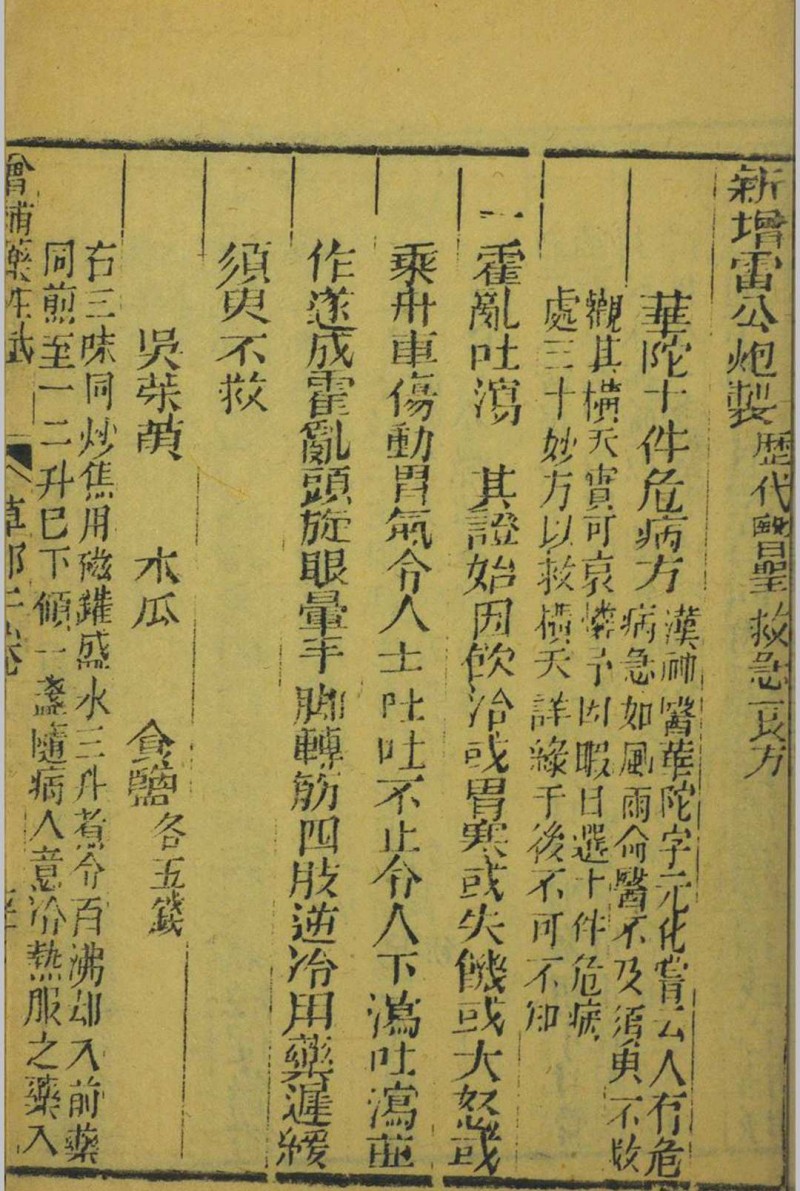 新增雷公炮製歷代醫聖救急良方
華陀十件危病方
漢神醫華陀字元化嘗云人有危
病急如風雨命醫不及須臾不救
觀其橫夭實可哀憐予因暇日選十件危病
處三十妙方以救橫夭詳錄于後不可不知
一霍亂吐瀉 其證始因飲冷或胃寒或失饑或大怒或
乘舟車傷動胃氣令人上吐吐不止令人下瀉吐瀉並
作遂成霍亂頭旋眼暈手脚轉筋四肢逆冷用藥遲緩
須臾不救
吳茱萸 木瓜 食鹽各五錢
右三味同炒焦用磁罐盛水三升煮令百沸却入前藥
同煎至一二升巳下傾一盞隨病人意冷熱服之藥入
草部